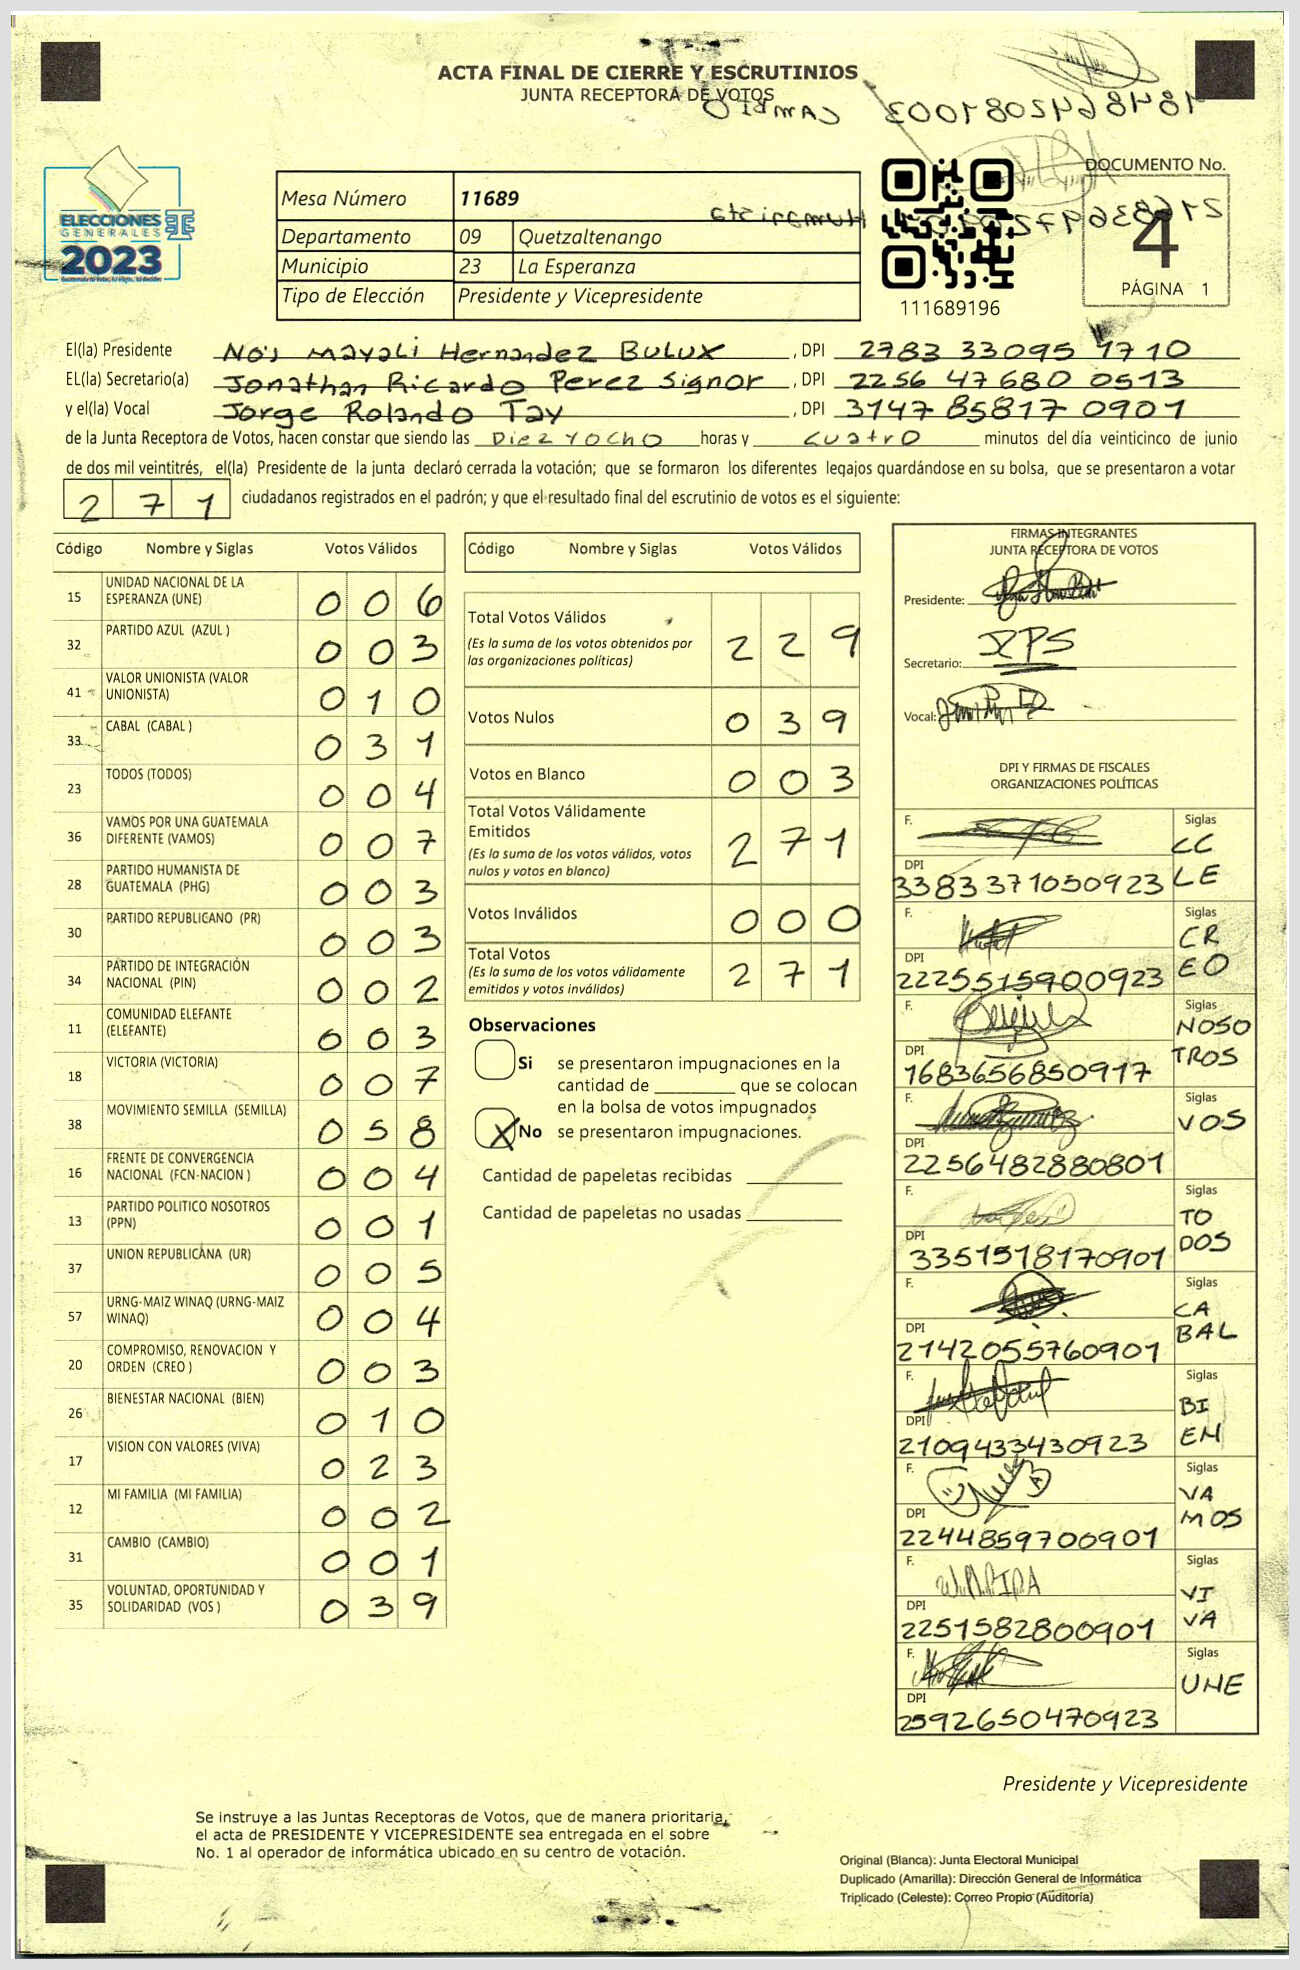 ACTA FINAL DE CIERRE Y ESCRUTINIOS
JUNTA RECEPTORA DE VOTOS
1848642081003 CAmBIO
DOCUMENTO No.
4
PÁGINA 1
Humanista
ELECCIONES
GENERALES
2023
Mesa Número 11689
Departamento 09 Quetzaltenango
Municipio 23 La Esperanza
Tipo de Elección Presidente y Vicepresidente
111689196
El(la) Presidente No's mayali Hernandez Bulux, DPI 2783 33095 1710
EL(la) Secretario(a) Jonathan Ricardo Perez Signor, DPI 2256 47680 0513
y el(la) Vocal Jorge Rolando Tay, DPI 3147 85817 0901
de la Junta Receptora de Votos, hacen constar que siendo las Diez y ocho horas y cuatro minutos del día veinticinco de junio
de dos mil veintitrés, el(la) Presidente de la junta declaró cerrada la votación; que se formaron los diferentes legajos quardándose en su bolsa, que se presentaron a votar
2 7 1 ciudadanos registrados en el padrón; y que el resultado final del escrutinio de votos es el siguiente:
Código Nombre y Siglas Votos Válidos
15 UNIDAD NACIONAL DE LA ESPERANZA (UNE) 0 0 6
32 PARTIDO AZUL (AZUL ) 0 0 3
41 VALOR UNIONISTA (VALOR UNIONISTA) 0 1 0
33 CABAL (CABAL ) 0 3 1
23 TODOS (TODOS) 0 0 4
36 VAMOS POR UNA GUATEMALA DIFERENTE (VAMOS) 0 0 7
28 PARTIDO HUMANISTA DE GUATEMALA (PHG) 0 0 3
30 PARTIDO REPUBLICANO (PR) 0 0 3
34 PARTIDO DE INTEGRACIÓN NACIONAL (PIN) 0 0 2
11 COMUNIDAD ELEFANTE (ELEFANTE) 0 0 3
18 VICTORIA (VICTORIA) 0 0 7
38 MOVIMIENTO SEMILLA (SEMILLA) 0 5 8
16 FRENTE DE CONVERGENCIA NACIONAL (FCN-NACION ) 0 0 4
13 PARTIDO POLITICO NOSOTROS (PPN) 0 0 1
37 UNION REPUBLICANA (UR) 0 0 5
57 URNG-MAIZ WINAQ (URNG-MAIZ WINAQ) 0 0 4
20 COMPROMISO, RENOVACION Y ORDEN (CREO ) 0 0 3
26 BIENESTAR NACIONAL (BIEN) 0 1 0
17 VISION CON VALORES (VIVA) 0 2 3
12 MI FAMILIA (MI FAMILIA) 0 0 2
31 CAMBIO (CAMBIO) 0 0 1
35 VOLUNTAD, OPORTUNIDAD Y SOLIDARIDAD (VOS ) 0 3 9
Código Nombre y Siglas Votos Válidos
Total Votos Válidos 2 2 9
(Es la suma de los votos obtenidos por
las organizaciones políticas)
Votos Nulos 0 3 9
Votos en Blanco 0 0 3
Total Votos Válidamente
Emitidos 2 7 1
(Es la suma de los votos válidos, votos
nulos y votos en blanco)
Votos Inválidos 0 0 0
Total Votos 2 7 1
(Es la suma de los votos válidamente
emitidos y votos inválidos)
Observaciones
Si se presentaron impugnaciones en la
cantidad de ________ que se colocan
en la bolsa de votos impugnados
X No se presentaron impugnaciones.
Cantidad de papeletas recibidas
Cantidad de papeletas no usadas
FIRMAS INTEGRANTES
JUNTA RECEPTORA DE VOTOS
Presidente:
Secretario:
Vocal:
DPI Y FIRMAS DE FISCALES
ORGANIZACIONES POLÍTICAS
F. Siglas CC LE
DPI 3383371050923
F. Siglas CR EO
DPI 2225515900923
F. Siglas NOSO TROS
DPI 1683656850917
F. Siglas VOS
DPI 2256482880801
F. Siglas TO DOS
DPI 3351518170901
F. Siglas CA BAL
DPI 2142055760901
F. Siglas BI EN
DPI 2109433430923
F. Siglas VA MOS
DPI 2244859700901
F. Siglas VI VA
DPI 2251582800901
F. Siglas UNE
DPI 2592650470923
Presidente y Vicepresidente
Se instruye a las Juntas Receptoras de Votos, que de manera prioritaria,
el acta de PRESIDENTE Y VICEPRESIDENTE sea entregada en el sobre
No. 1 al operador de informática ubicado en su centro de votación.
Original (Blanca): Junta Electoral Municipal
Duplicado (Amarilla): Dirección General de Informática
Triplicado (Celeste): Correo Propio (Auditoría)